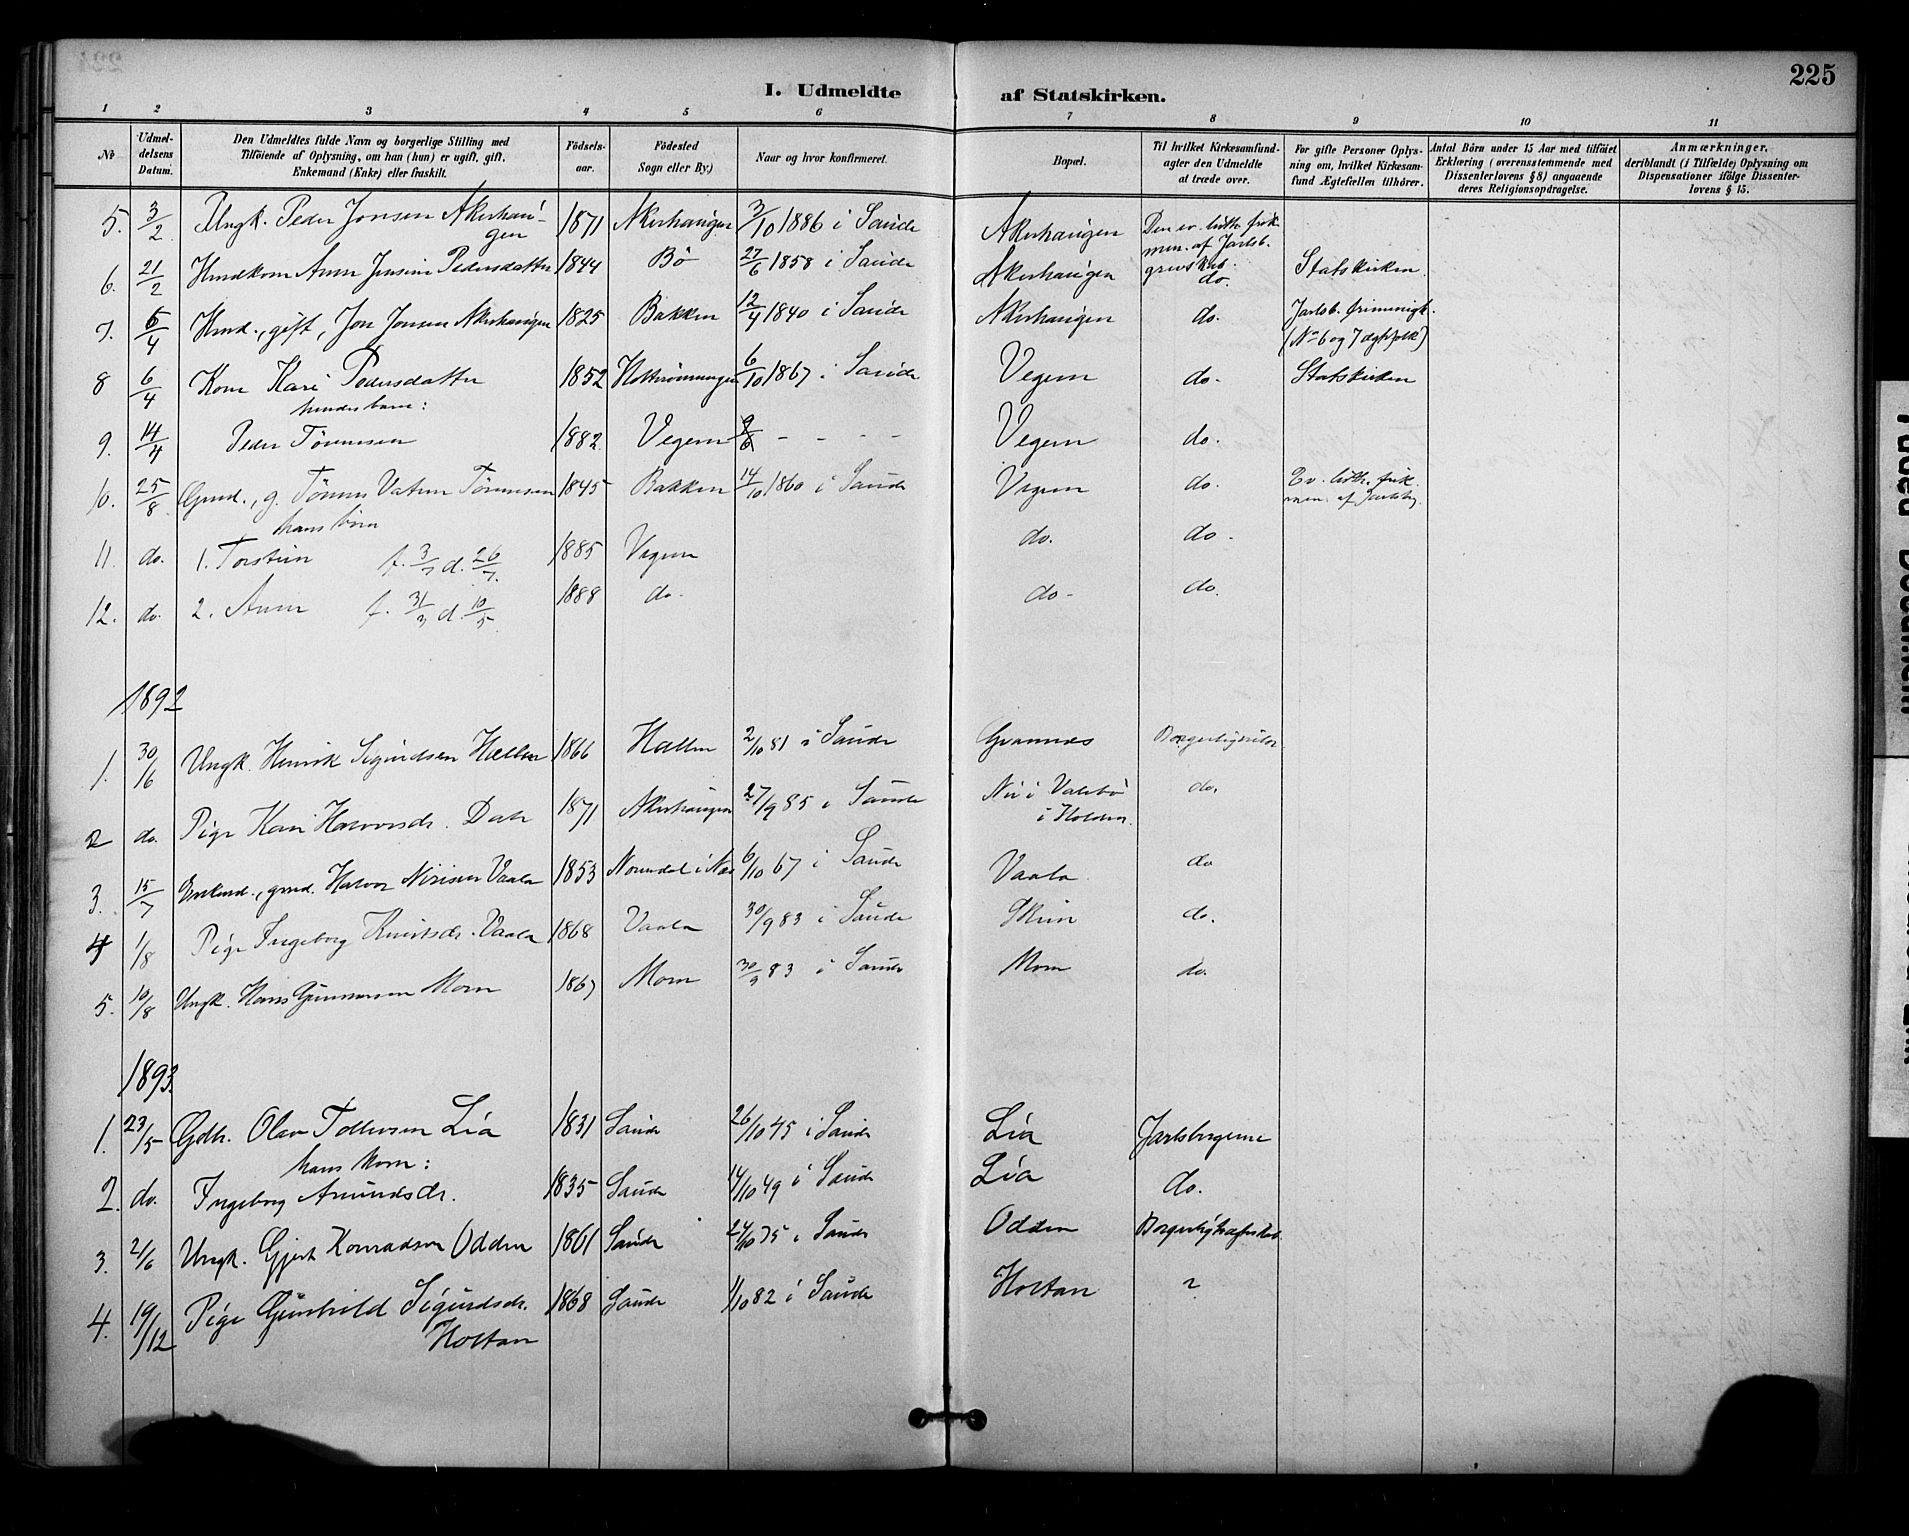 225
I. Udmeldte af Statskirken.
1 2 3 4 5 6 7 8 9 10 11
No
Udmeldelsens Datum.
Den Udmeldtes fulde Navn og borgerlige Stilling med
Tilföiende af Oplysning, om han (hun) er ugift, gift,
Enkemand (Enke) eller fraskilt.
Födselsaar.
Födested
Sogn eller By.)
Naar og hvor konfirmeret.
Bopæl.
Til hvilket Kirkesamfund-
agter den Udmeldte
at træde over.
For gifte Personer Oplys-
ning om, hvilket Kirkesam-
fund Ægtefællen tilhörer.
Antal Börn under 15 Aar med tilföiet
Erklæring (overensstemmende med
Dissenterlovens § 8) angaaende
deres Religionsopdragelse.
Anmærkninger,
deriblandt (i Tilfælde) Oplysning om
Dispensationer ifölge Dissenter-
lovens § 15.
5. 3/2 Ungk. Peder Jonsen Akerhaugen 1871 Akerhaugen 3/10 1886 i Saude Akerhaugen Den ev. luth. frimen. af Jarlsb. grevskab.
6. 21/2 Anne Jensine Pedersdatter 1844 Bö 27/6 1858 i Saude Akerhaugen do. Statskirken.
7. 6/4 Husd., gift, Jon Jonsen Akerhaugen 1825 Bakken 12/4 1840 i Saude Akerhaugen do. Jarlsb. frimenigh.
(No 6 og 7 ægtefolk)
8 6/4 Kone Kari Pedersdatter 1852 6/10 1867 i Saude Vegem do. Statskirken
hendes barn:
9. 14/4 Peder Tönnesen 1882 Vegem - - - - Vegem do.
10. 25/8 Gmd., g. Tönnes Tönnesen 1845 Bakken 14/10 1860 i Saude Vegem do. Ev. luth. frik.
men. af Jarlsbg.
hans börn
11. do. 1. Torstein f. 3/7 d. 26/7. 1885 Vegem do. do.
12. do. 2. Anne f. 31/3 d. 10/5 1888 do. do. do.
1892
1. 30/6 Ungk. Henrik Sigurdsen 1866 2/10 81 i Saude
2 do. Pige Kari Halvorsdr. Dale 1871 Akerhaugen 27/9 85 i Saude Nu i Valebö
i Holden. do.
3. 15/7 Enkemd., gmd. Halvor Vaala 1853 6/10 67 i Saude Vaala do
4 1/8 Pige Ingeborg Knutsdr. Vaala 1868 Vaala 30/9 83 i Saude Skien do.
5. 10/8 Ungk. Hans Gunnarsen Moen 1867 Moen 30/9 83 i Saude Moen do.
1893.
1. 23/5 Gdbr. Olav Tollevsen Lia 1831 Saude 26/10 45 i Saude Lia Jarlsbergerne
hans kone:
2. do. Ingeborg Amundsdr. 1835 Saude 14/10 49 i Saude Lia do.
3. 2/6 Ungk. Gjert Konradsen Odden 1861 Saude 24/10 75 i Saude Odden
4. 19/12 Pige Gunhild Sigurdsdr. Holtan 1868 Saude 1/10 82 i Saude Holtan ?